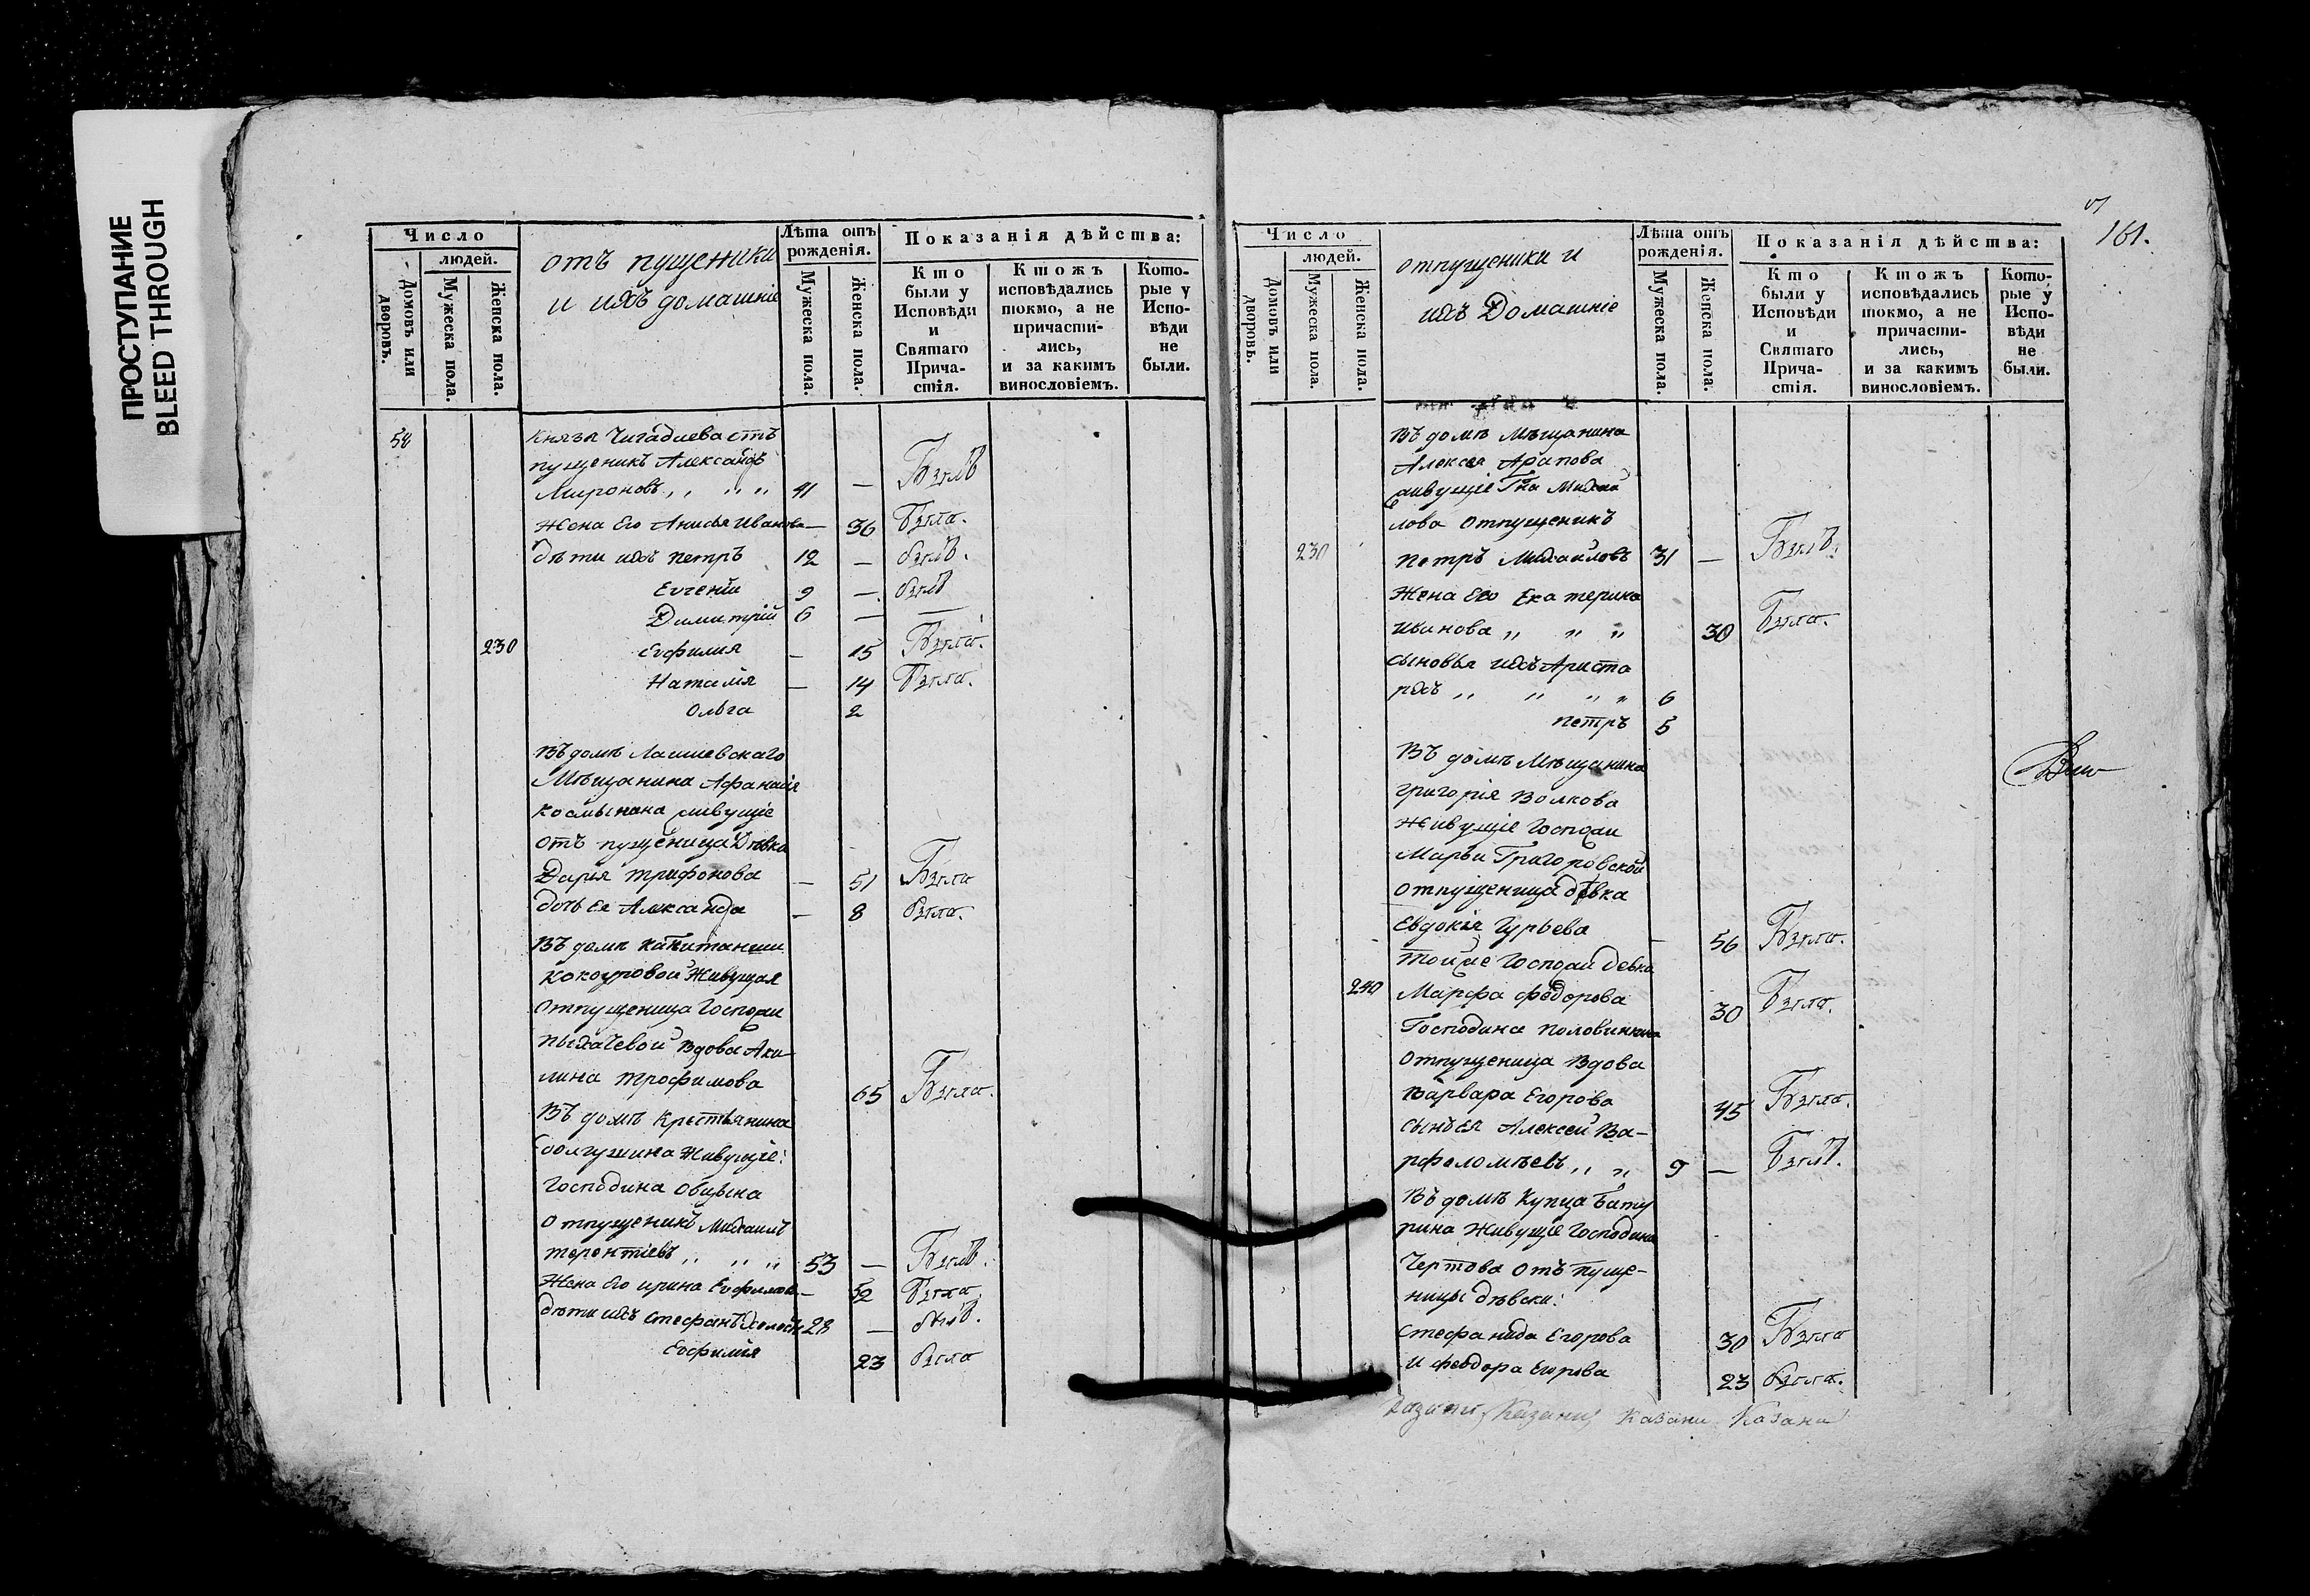 ПРОСТУПАНИЕ
BLEED THROUGH
Число
людей.
Домовъ или дворовъ.
Мужеска пола.
Женска пола.
отъ пущеники
и ихъ домашніе
Лѣта отъ рожденія.
Мужеска пола.
Женска пола.
Показанія дѣйства:
Кто были у Исповѣди и Святаго Прича-стія.
Ктожъ исповѣдались токмо, а не причасти-лись, и за какимъ винословіемъ.
Кото-рые у Испо-вѣди не были.
58 Князя Чигадаева отъ
пущеникъ Александръ
Мироновъ ,, ,, ,, 41 — Былъ
Жена Его Анисья Иванова — 36 Была.
дѣти ихъ Петръ 12 — былъ.
Евгеній 9 — былъ
Димитрій 6 — —
230 Евфимия — 15 Была.
Наталія — 14 Была.
Ольга 2
Въ домѣ Лаишевскаго
Мѣщанина Афанасія
живущіе
отъ пущеница Дѣвка
Дарія Трифонова — 51 Была
дочь Ея Александра — 8 была.
Въ домѣ Капитанши
Живущая
Отпущеница Госпожи
Пыхачевой Вдова Аки-
лина Трофимова 65 Была.
Въ домѣ Крестьянина
Живущіе:
Господина
Отпущеникъ Михаилъ
Терентіевъ ,, ,, ,, 53 — Былъ.
Жена Его Ирина Евфимова — 52 Была
дѣти ихъ Стефанъ Холостъ 28 — былъ.
Евфимія 23 была
161.
Число
людей.
Домовъ или дворовъ.
Мужеска пола.
Женска пола.
отпущеники и
ихъ Домашніе
Лѣта отъ рожденія.
Мужеска пола.
Женска пола.
Показанія дѣйства:
Кто были у Исповѣди и Святаго Прича-стія.
Ктожъ исповѣдались токмо, а не причасти-лись, и за какимъ винословіемъ.
Кото-рые у Испо-вѣди не были.
Въ домѣ Мѣщанина
Алексея Арапова
живущіе Гна Михай
лова Отпущеникъ
230 Петръ Михайловъ 31 — Былъ.
Жена Его Екатерина
Иванова ,, ,, ,, 30 Была.
сыновья ихъ Ариста
рхъ ,, ,, ,, ,, 6
Петръ 5
Въ домѣ Мѣщанина
Григорія Волкова
Живущіе Госпожи
Марьи Григоровской
отпущеница дѣвка
Евдокія Гурьева — 56 Была.
Тойже Госпожи девка
240 Марфа Федорова 30 Была.
Господина Половинкина
Отпущеница Вдова
Варвара Егорова 45 Была.
Сынъ Ея Алексей Ва-
рфоломѣевъ ,, ,, 9 — Былъ.
Въ домѣ Купца Бату
рина Живущіе Господина
Чертова Отъ пуще-
ницы дѣвски:
Стефанида Егорова 30 Была
и Феодора Егорова 23 была.
Казани Казани Казани Казани